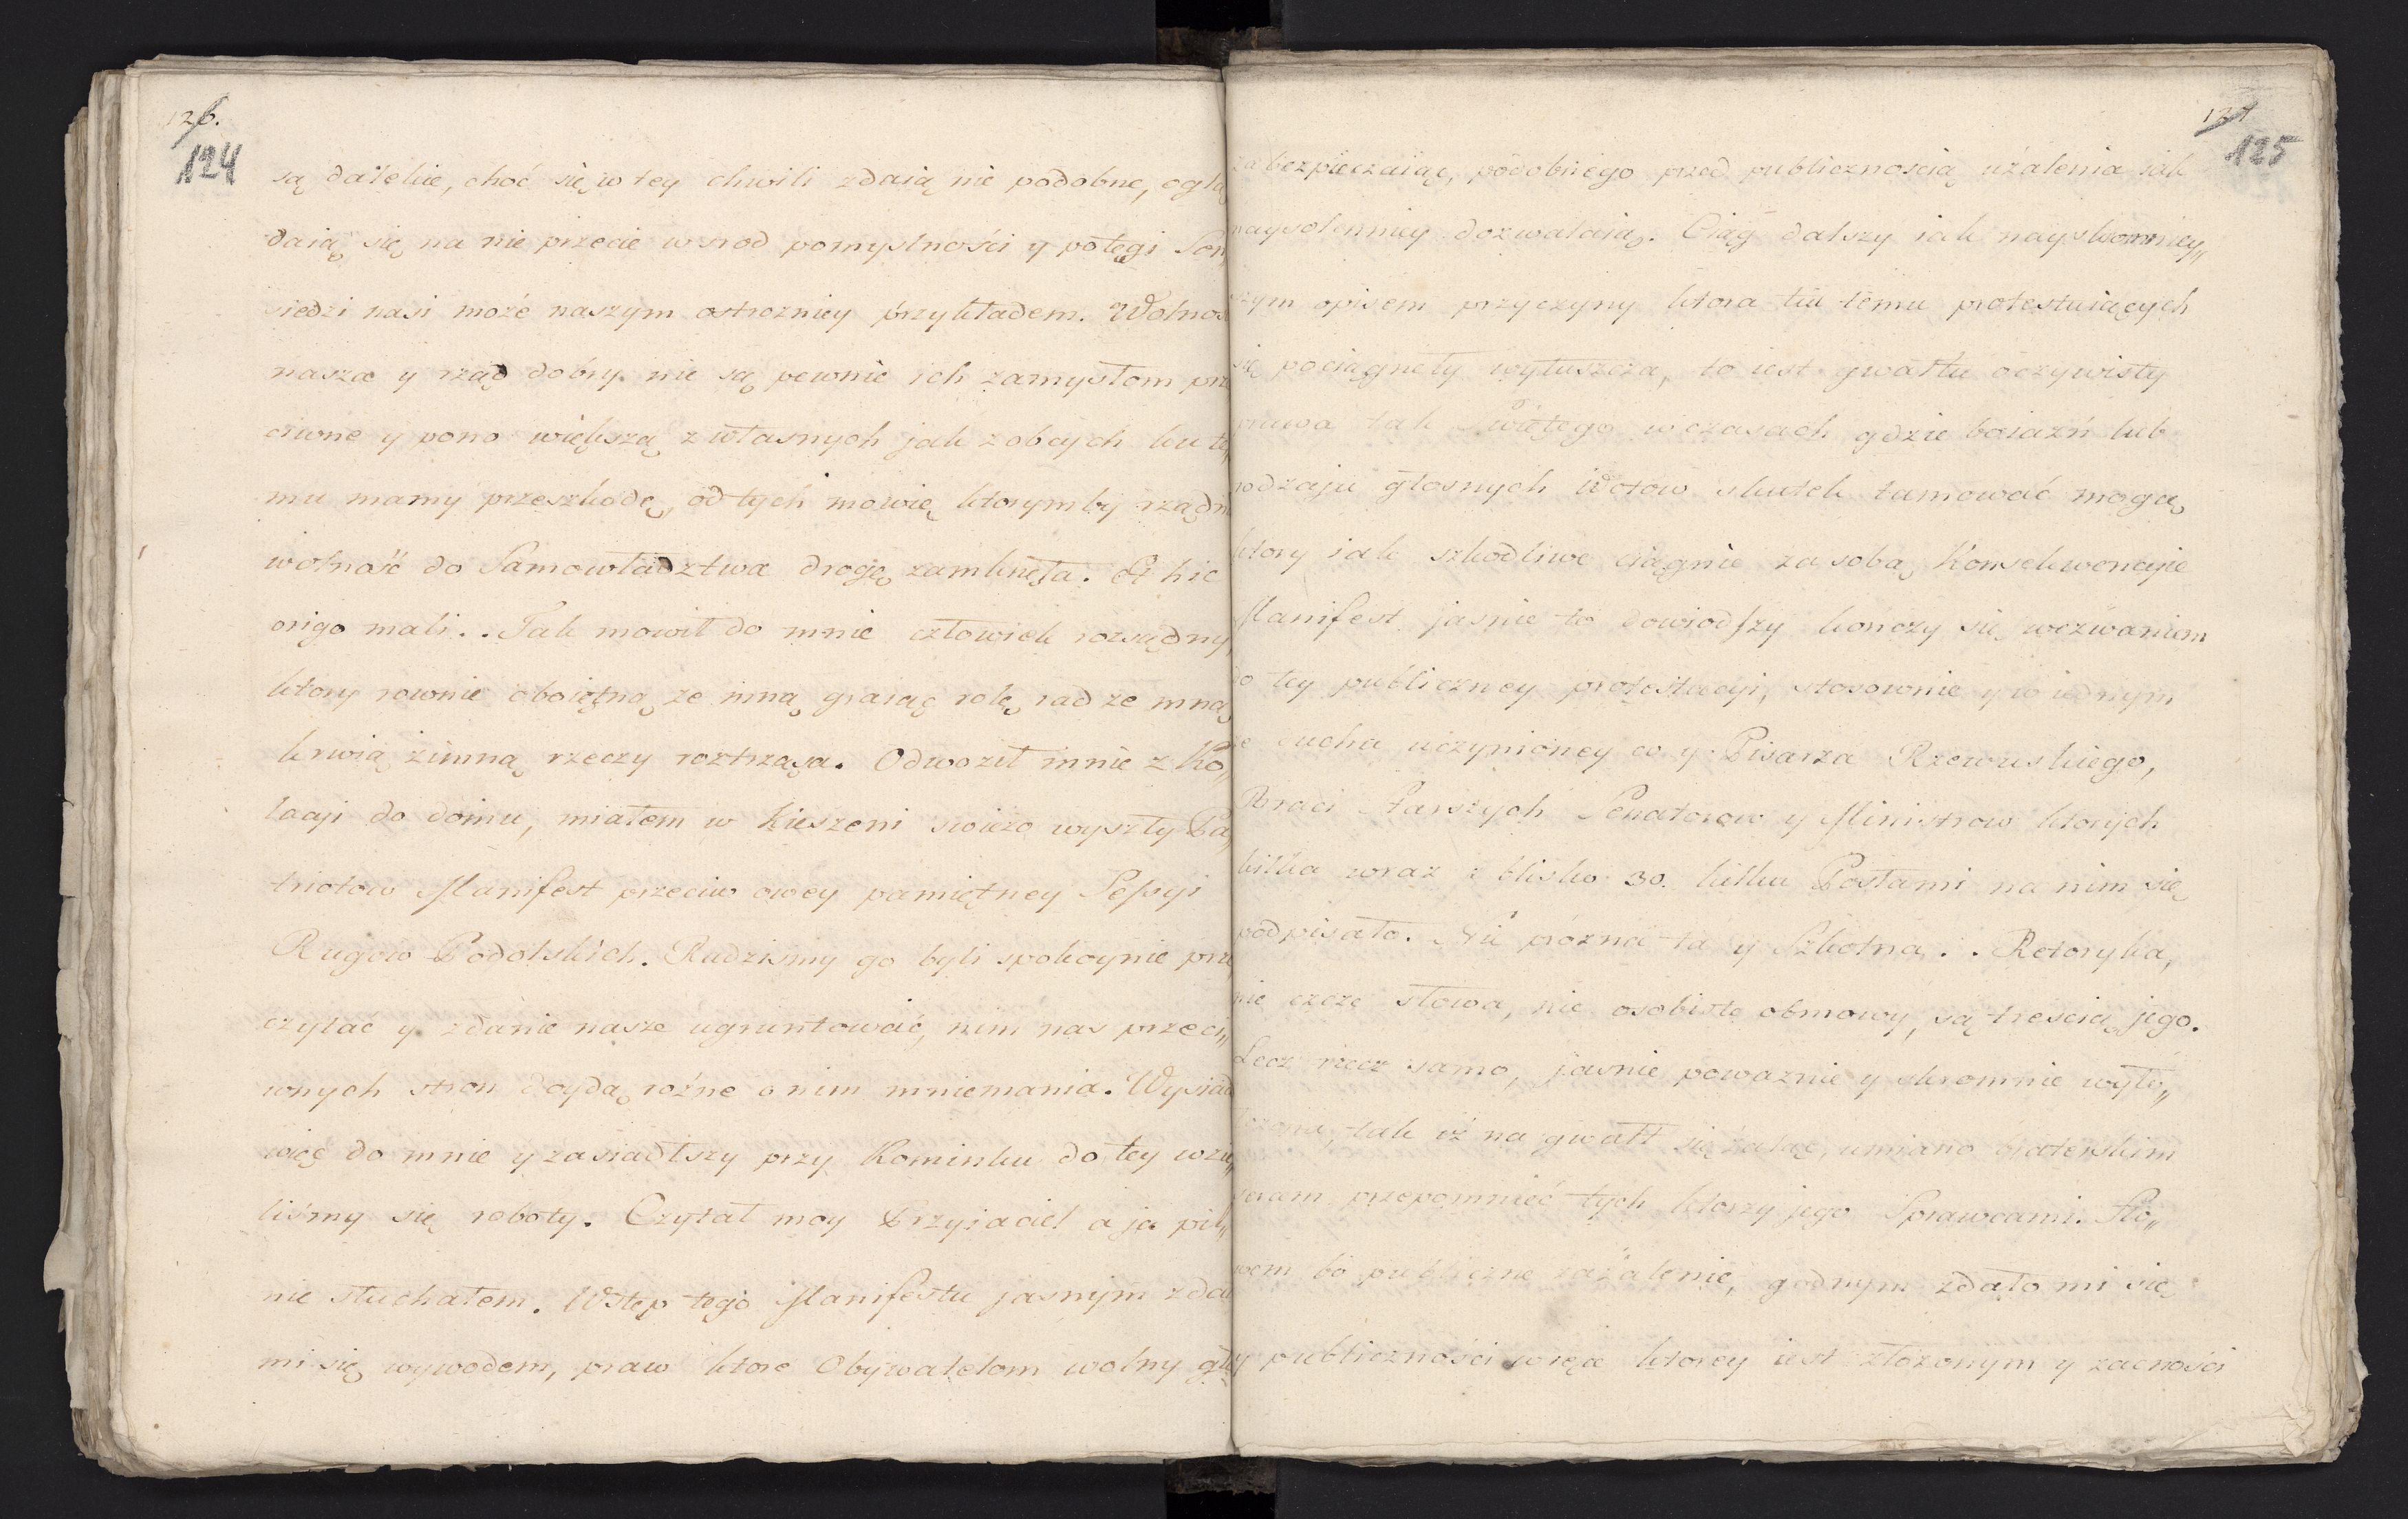 126.
124
są dalekie, choć się w tey chwili zdaią nie podobne, oglą
daią się na nie przecie wsrod pomyslności y potęgi Son
siedzi nasi może naszym ostrozniey przykładem. Wolnos
nasza y rząd dobry nie są pewnie ich zamysłom prze
ciwne y pono większą z własnych jak z obcych ku te
mu mamy przeszkodę, od tych mowię ktorym by rządn
wolność do Samowładztwa drogę zamknęła. Et hic
origo mali.. Tak mowił do mnie człowiek rozsądny
ktory rownie oboiętną ze mną graiąc rolę, rad ze mną
krwią zimną rzeczy roztrząsa. Odwoził mnie z Ko„
lacyi do domu, miałem w kieszeni swieżo wyszły Pa„
triotow Manifest przeciw owey pamiętney Sessyi
Rugow Podolskich. Radzismy go byli spokoynie prze
czytać y zdanie nasze ugruntować, nim nas przeci„
wnych stron doydą rożne o nim mniemania. Wysiad
więc do mnie y zasiadłszy przy Kominku do tey wzie„
liśmy się roboty. Czytał moy Przyiaciel a ja pil„
nie słuchałem. Wstęp tego Manifestu jasnym zdał
mi się wywodem, praw ktore Obywatelom wolny głos
127
125
zabezpieczaiąc, podobnego przed publicznoscią użalenia iak
naysolenniey dozwalaią. Ciąg dalszy iak nayskromniey„
szym opisem przyczyny ktora tu temu protestuiących
się pociągnęły wytuszcza, to iest gwałtu oczywisty
prawa tak Swiętego w czasach gdzie boiaźń lub
rodzaju głosnych Wotow skutek tamować mogą,
ktory iak szkodliwe ciągnie za sobą Konsekwencyie
Manifest jasnie to dowiodszy kończy się wezwaniem
do tey publiczney protestacyi, stosownie y w iednym
ducha uczynioney co y Pisarza Rzewuskiego,
Braci Starszych Senatorow y Ministrow ktorych
kilka wraz z blisko 30. kilku Posłami na nim się
podpisało. Nie prózna ta y Szkolna.. Retoryka,
nie czcze słowa, nie osobiste obmowy, są treścią jego.
Lecz rzecz samo, jasnie poważnie y skromnie wyłu„
tak iż na gwałt się żaląc, umiano
przepomnieć tych ktorzy jego Sprawcami. Sło„
wem to publiczne zażalenie, godnym zdało mi się
y publiczności w ręce ktorey iest złożonym y zacności